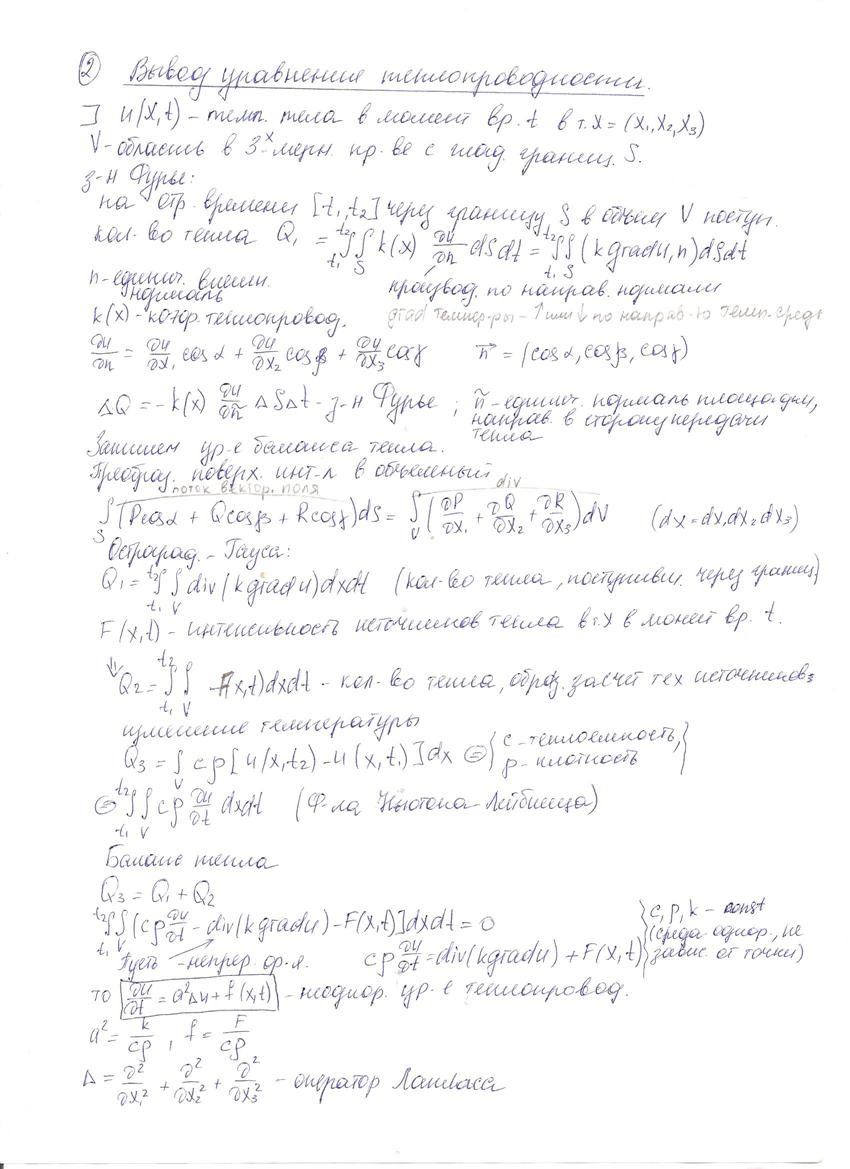 ② Вывод уравнения теплопроводности.
] u(x,t) – темп. тела в момент вр. t в т. x = (x₁,x₂,x₃)
V – область в 3ˣ мерн. пр-ве с глад. границ. S.
з-н Фурье:
на отр. времени [t₁,t₂] через границу S в объем V поступ.
кол-во тепла Q₁ = ∫_{t₁}^{t₂} ∫_S k(x) ∂u/∂n dS dt = ∫_{t₁}^{t₂} ∫_S (k grad u, n) dS dt
n – единич. внешн. нормаль
производ. по направ. нормали
k(x) – коэф. теплопровод.
grad темпер-ры – ↑ или ↓ по направ-ю темп. среды
∂u/∂n = ∂u/∂x₁ cos α + ∂u/∂x₂ cos β + ∂u/∂x₃ cos γ    n⃗ = (cos α, cos β, cos γ)
ΔQ = –k(x) ∂u/∂ñ ΔSΔt – з-н Фурье ; ñ – единич. нормаль площадки,
направ. в сторону передачи тепла
Запишем ур-е баланса тепла.
Преобраз. поверх. инт-л в объемный
поток вектор. поля    div
∫_S (P cos α + Q cos β + R cos γ) dS = ∫_V (∂P/∂x₁ + ∂Q/∂x₂ + ∂R/∂x₃) dV    (dx = dx₁dx₂dx₃)
Остроград. – Гауса:
Q₁ = ∫_{t₁}^{t₂} ∫_V div(k grad u) dx dt (кол-во тепла, поступивш. через границ)
F(x,t) – интенсивность источников тепла в т. x в момент вр. t.
Q₂ = ∫_{t₁}^{t₂} ∫_V F(x,t) dx dt – кол-во тепла, образ. засчет тех источников
изменение температуры
Q₃ = ∫_V cρ [u(x,t₂) – u(x,t₁)] dx ⊜ { c – теплоемкость, ρ – плотность }
⊜ ∫_{t₁}^{t₂} ∫_V cρ ∂u/∂t dx dt (Ф-ла Ньютона-Лейбница)
Баланс тепла
Q₃ = Q₁ + Q₂
∫_{t₁}^{t₂} ∫_V (cρ ∂u/∂t – div(k grad u) – F(x,t)] dx dt = 0
Пусть – непрер. ф-я.    cρ ∂u/∂t = div(k grad u) + F(x,t)
{ c, ρ, k – const
(среда однор., не
завис. от точки) }
то ∂u/∂t = a²Δu + f(x,t) – неоднор. ур-е теплопровод.
a² = k/cρ , f = F/cρ
Δ = ∂²/∂x₁² + ∂²/∂x₂² + ∂²/∂x₃² – оператор Лапласа